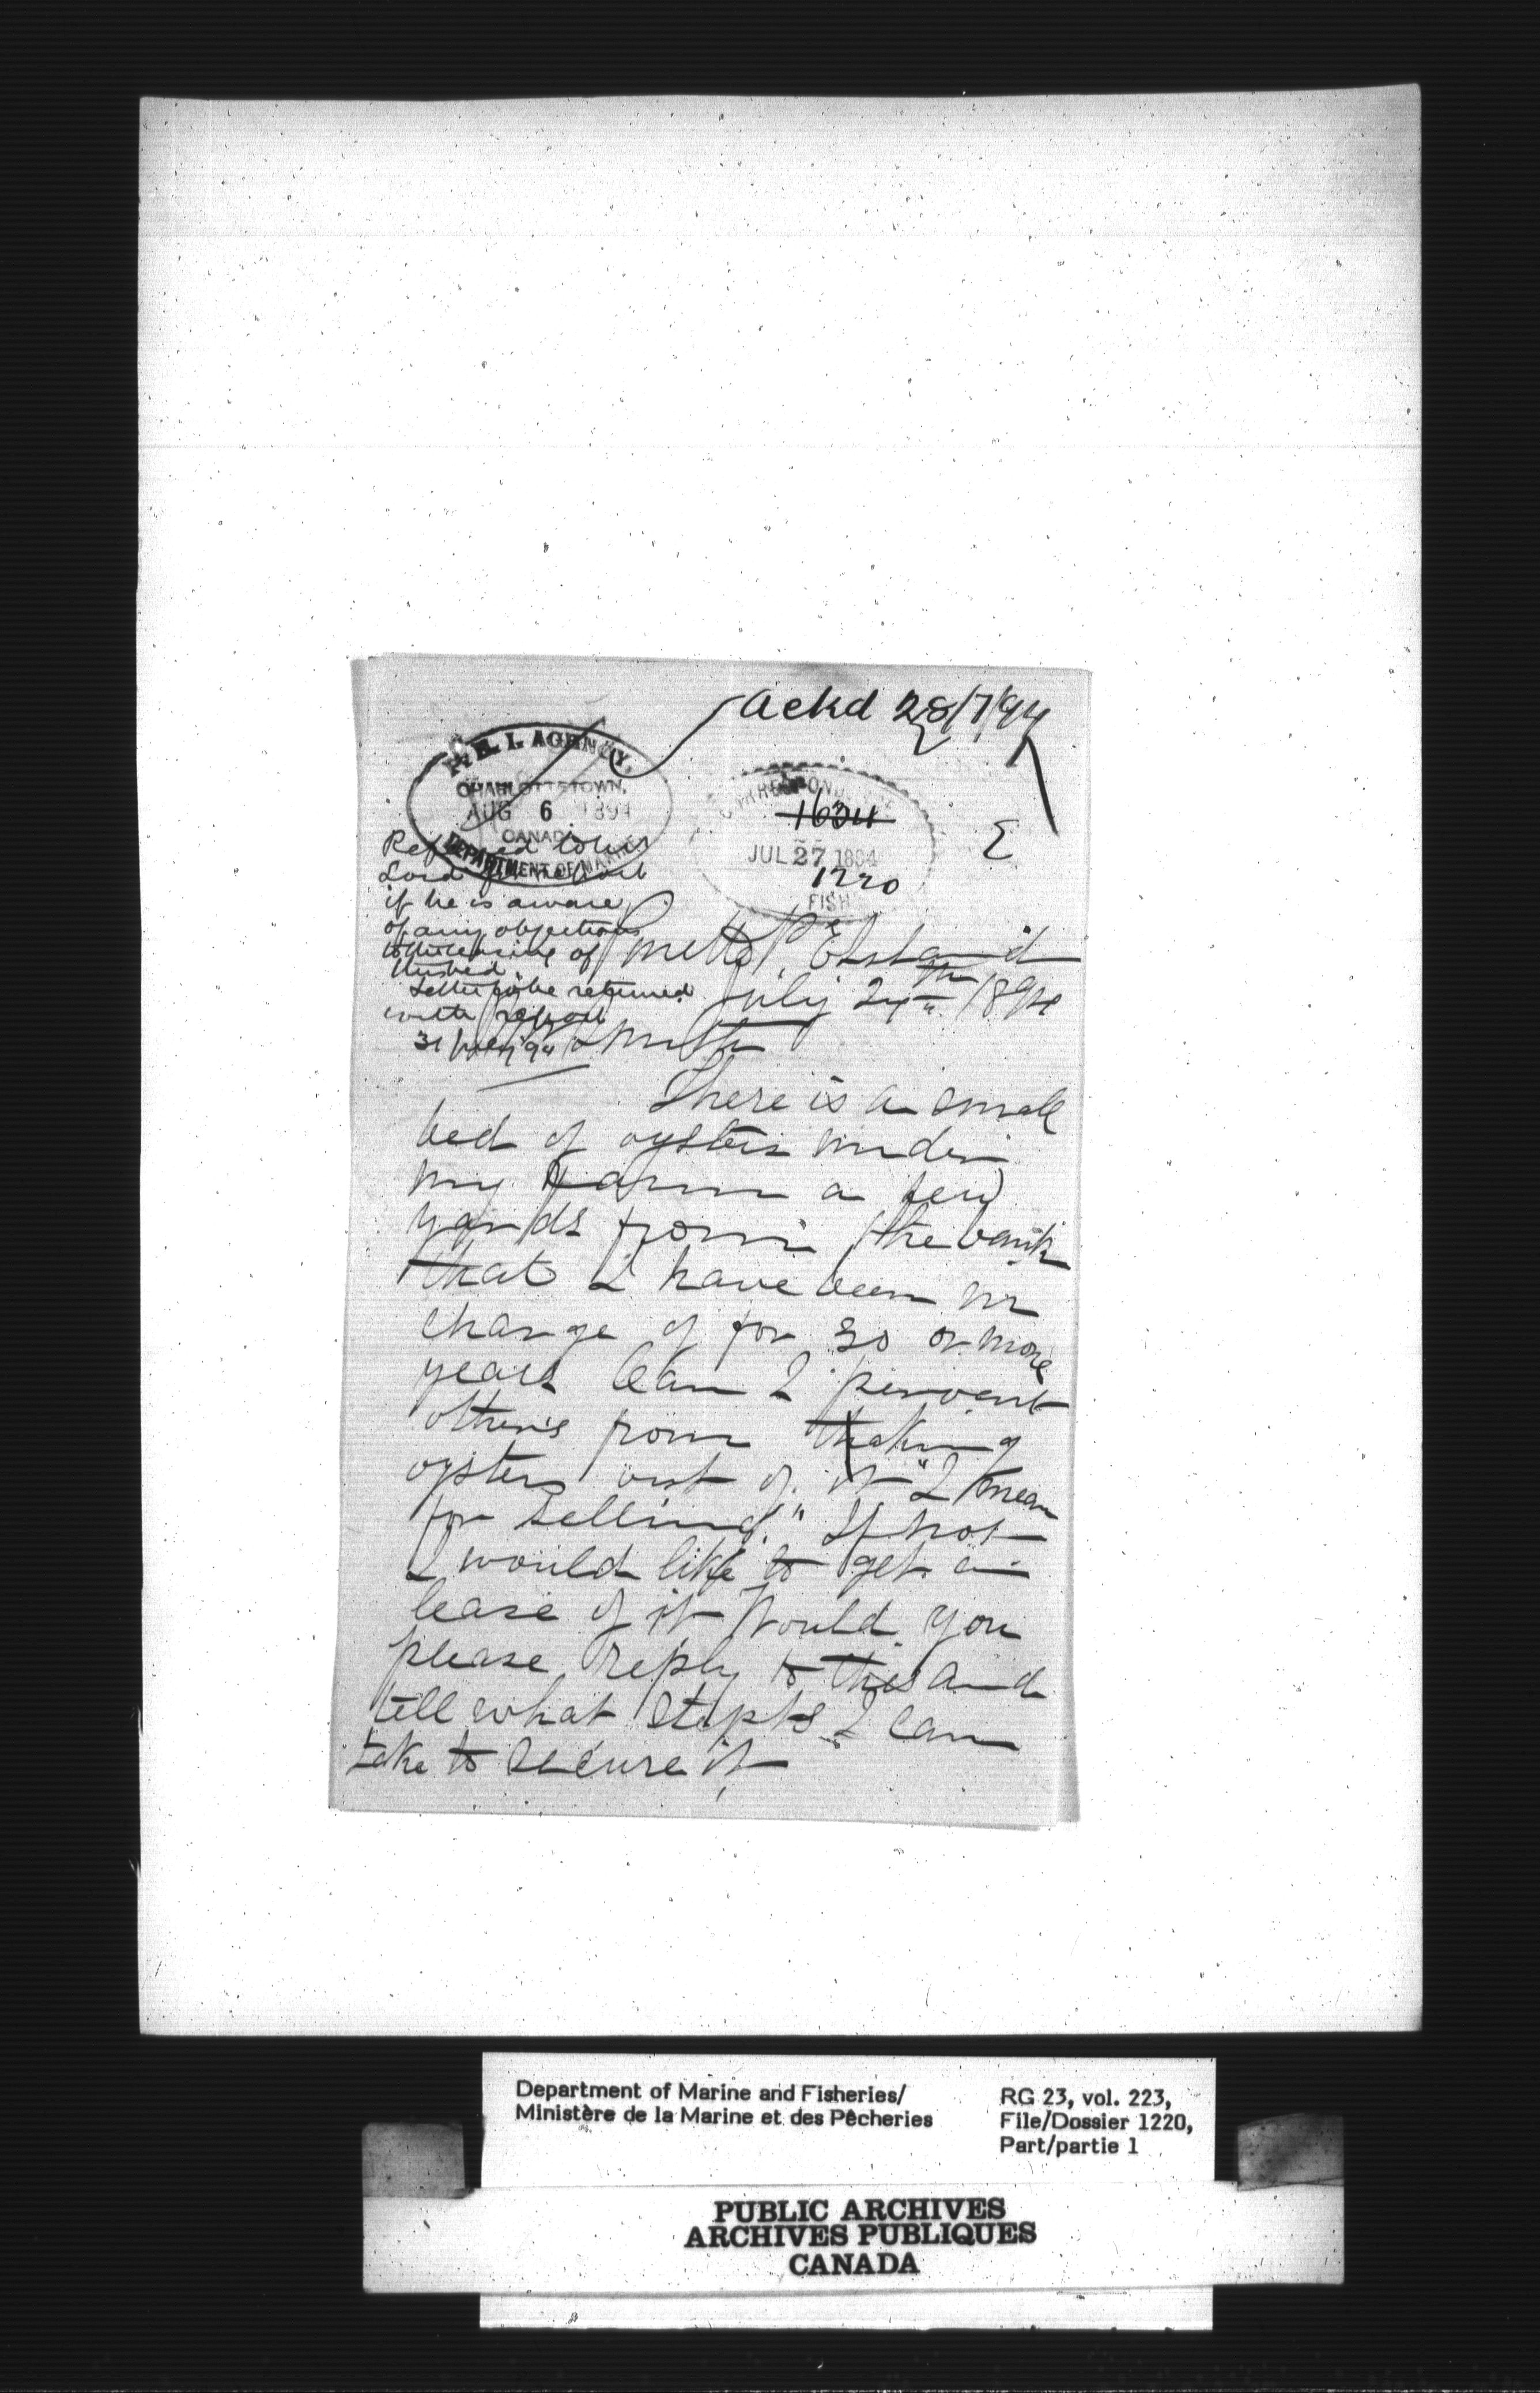 ackd 28/7/94
P. E. I. AGENCY.
CHARLOTTETOWN,
AUG 6 1894
CANADA
DEPARTMENT OF MARINE
CORRESPONDENCE
1634
JUL 27 1894
1220
FISH
Σ
Referred to
Lord for report
if he is aware
of any objections
to the leasing of
this bed.
Letter to be returned
with report
31 July 94
P E Island
July 24th 1894
There is a small
bed of oysters under
my farm a few
yards from the bank
that I have been in
charge of for 30 or more
years Can I pervent
others from thaking
oysters out of it "I mean
for selling." If not
I would like to get a
lease of it Would you
please reply to this and
tell what stepts I can
take to secure it
Department of Marine and Fisheries/
Ministère de la Marine et des Pêcheries
RG 23, vol. 223,
File/Dossier 1220,
Part/partie 1
PUBLIC ARCHIVES
ARCHIVES PUBLIQUES
CANADA